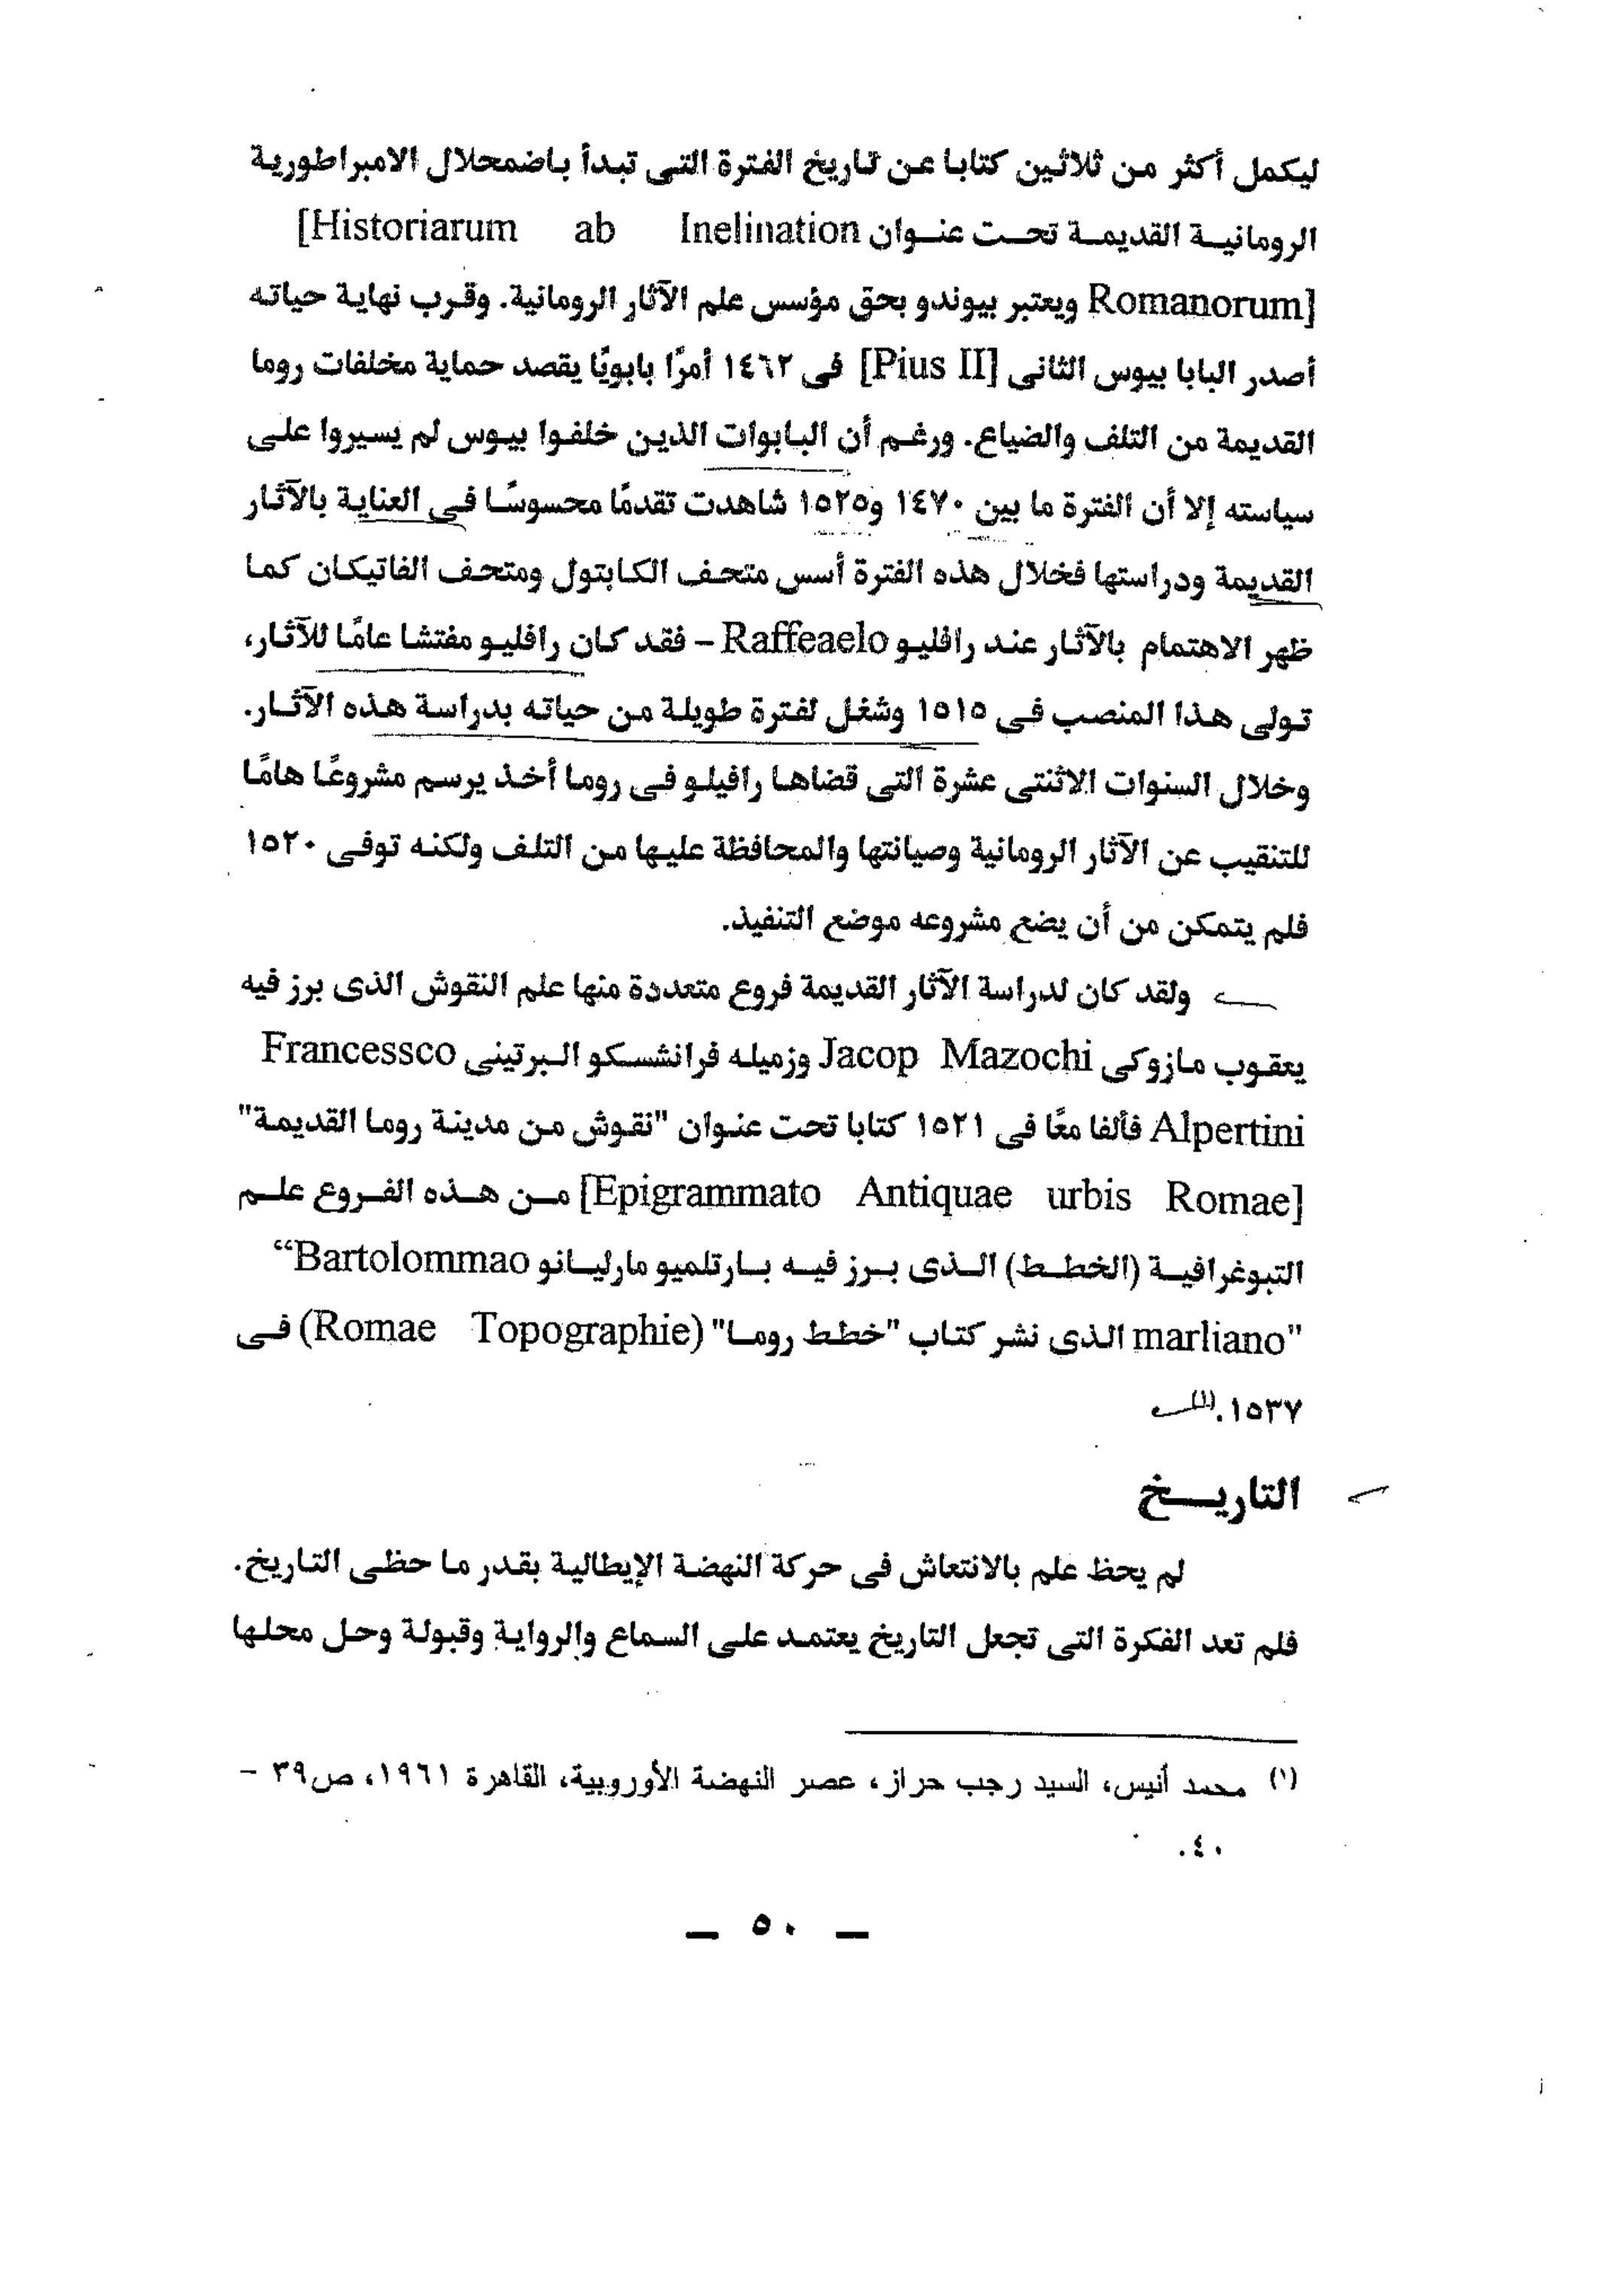 ليكمل أكثر من ثلاثين كتابا عن تاريخ الفترة التى تبدأ باضمحلال الامبراطورية
الرومانية القديمة تحت عنوان [Historiarum ab Inelination
Romanorum] ويعتبر بيوندو بحق مؤسس علم الآثار الرومانية. وقرب نهاية حياته
أصدر البابا بيوس الثانى [Pius II] فى ١٤٦٢ أمرًا بابويًا يقصد حماية مخلفات روما
القديمة من التلف والضياع. ورغم أن البابوات الذين خلفوا بيوس لم يسيروا على
سياسته إلا أن الفترة ما بين ١٤٧٠ و١٥٢٥ شاهدت تقدمًا محسوسًا فى العناية بالآثار
القديمة ودراستها فخلال هذه الفترة أسس متحف الكابتول ومتحف الفاتيكان كما
ظهر الاهتمام بالآثار عند رافليو Raffeaelo – فقد كان رافليو مفتشا عامًا للآثار،
تولى هذا المنصب فى ١٥١٥ وشغل لفترة طويلة من حياته بدراسة هذه الآثار.
وخلال السنوات الاثنتى عشرة التى قضاها رافيلو فى روما أخذ يرسم مشروعًا هامًا
للتنقيب عن الآثار الرومانية وصيانتها والمحافظة عليها من التلف ولكنه توفى ١٥٢٠
فلم يتمكن من أن يضع مشروعه موضع التنفيذ.
ولقد كان لدراسة الآثار القديمة فروع متعددة منها علم النقوش الذى برز فيه
يعقوب مازوكى Jacop Mazochi وزميله فرانشسكو البرتينى Francessco
Alpertini فألفا معًا فى ١٥٢١ كتابا تحت عنوان "نقوش من مدينة روما القديمة"
[Epigrammato Antiquae urbis Romae] من هذه الفروع علم
التبوغرافية (الخطط) الذى برز فيه بارتلميو مارليانو Bartolommao“
marliano" الذى نشر كتاب "خطط روما" (Romae Topographie) فى
١٥٣٧.(١)
التاريخ
لم يحظ علم بالانتعاش فى حركة النهضة الإيطالية بقدر ما حظى التاريخ.
فلم تعد الفكرة التى تجعل التاريخ يعتمد على السماع والرواية وقبولة وحل محلها
(١) محمد أنيس، السيد رجب حراز، عصر النهضة الأوروبية، القاهرة ١٩٦١، ص٣٩ –
٤٠.
– ٥٠ –